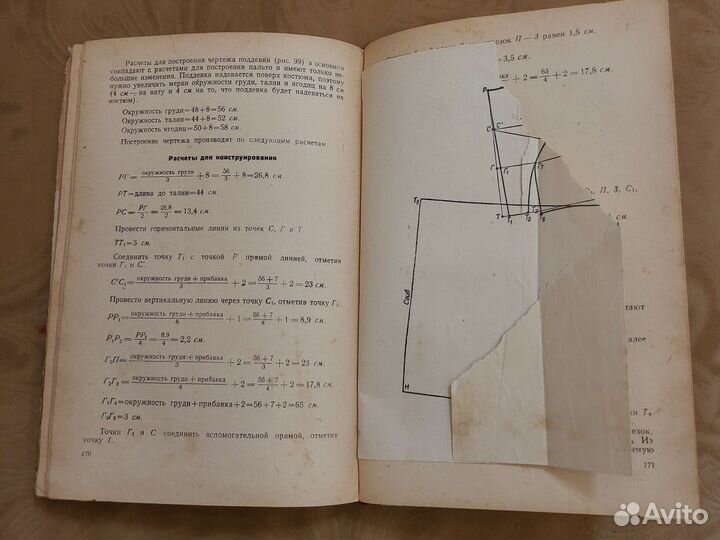 Расчеты для построения чертежа поддевки (рис. 99) в основном
совпадают с расчетами для построения пальто и имеют только не-
большие изменения. Поддевка надевается поверх костюма, поэтому
нужно увеличить мерки окружности груди, талии и ягодиц на 8 см
(4 см — на вату и 4 см на то, что поддевка будет надеваться на
костюм).
Окружность груди=48+8=56 см.
Окружность талии=44+8=52 см.
Окружность ягодиц=50+8=58 см.
Построение чертежа производят по следующим расчетам.
Расчеты для конструирования
РГ= окружность груди/3 +8= 56/3 +8=26,8 см.
РТ=длина до талии=44 см.
РС= РГ/2 = 26,8/2 =13,4 см.
Провести горизонтальные линии из точек С, Г и Т.
ТТ₁=3 см.
Соединить точку Т₁ с точкой Р прямой линией, отметив
точки Г₁ и С'.
С'С₁= окружность груди+прибавка/3 +2= 56+7/3 +2=23 см.
Провести вертикальную линию через точку С₁, отметив точку Г₂.
РР₁= окружность груди+прибавка/8 +1= 56+7/8 +1=8,9 см.
Р₁Р₂= РР₁/4 = 8,9/4 =2,2 см.
Г₁П= окружность груди+прибавка/3 +2= 56+7/3 +2=23 см.
Г₂Г₃= окружность груди+прибавка/4 +2= 56+7/4 +2=17,8 см.
Г₁Г₄=окружность груди+прибавка+2=56+7+2=65 см.
=3 см.
Точки и С соединить вспомогательной прямой, отметив
точку
170
езок П—3 равен 1,5 см.
=3,5 см.
+2= 63/4 +2=17,8 см.
Р
С С'
Г Г₁
Т₈
Т Т₁ Т₂
Сгиб
Н
П, 3, С₁,
см.
тают
алее
ки Т₈
езок,
Из
рямую
171
Avito